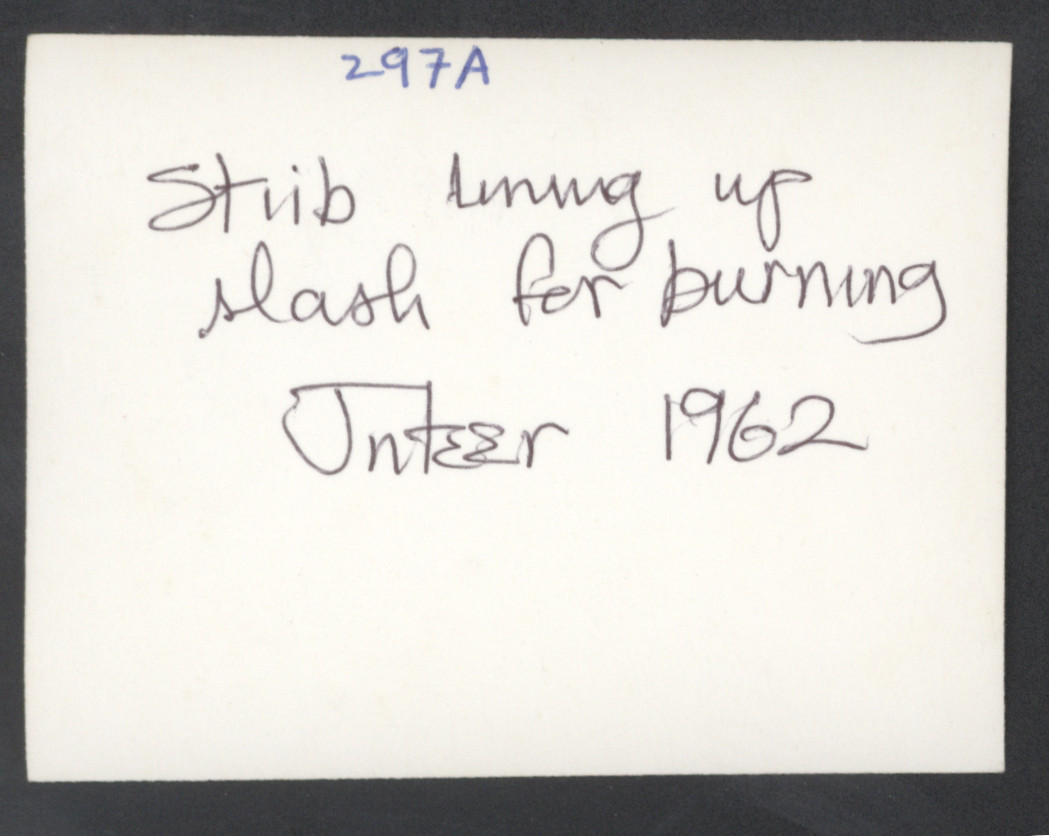 297A
Strib lining up
slash for burning
1962